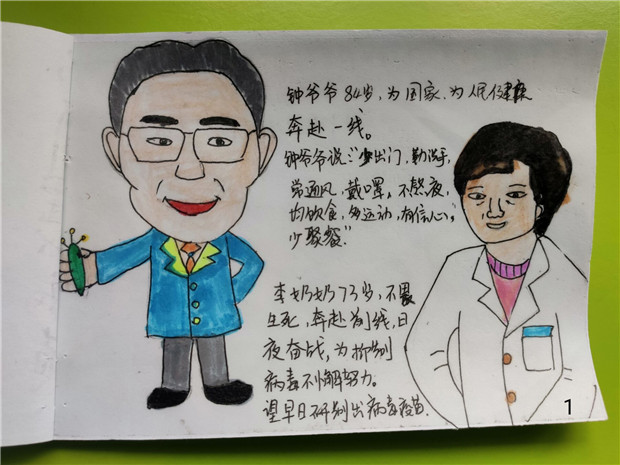 钟爷爷84岁,为国家、为人民健康
奔赴一线。
钟爷爷说:“少出门,勤洗手,
常通风,戴口罩,不熬夜,
均饮食,多运动,有信心,
少聚餐”
李奶奶73岁,不畏
生死,奔赴前线,日
夜奋战,为抑制
病毒不懈努力。
望早日研制出病毒疫苗.
1